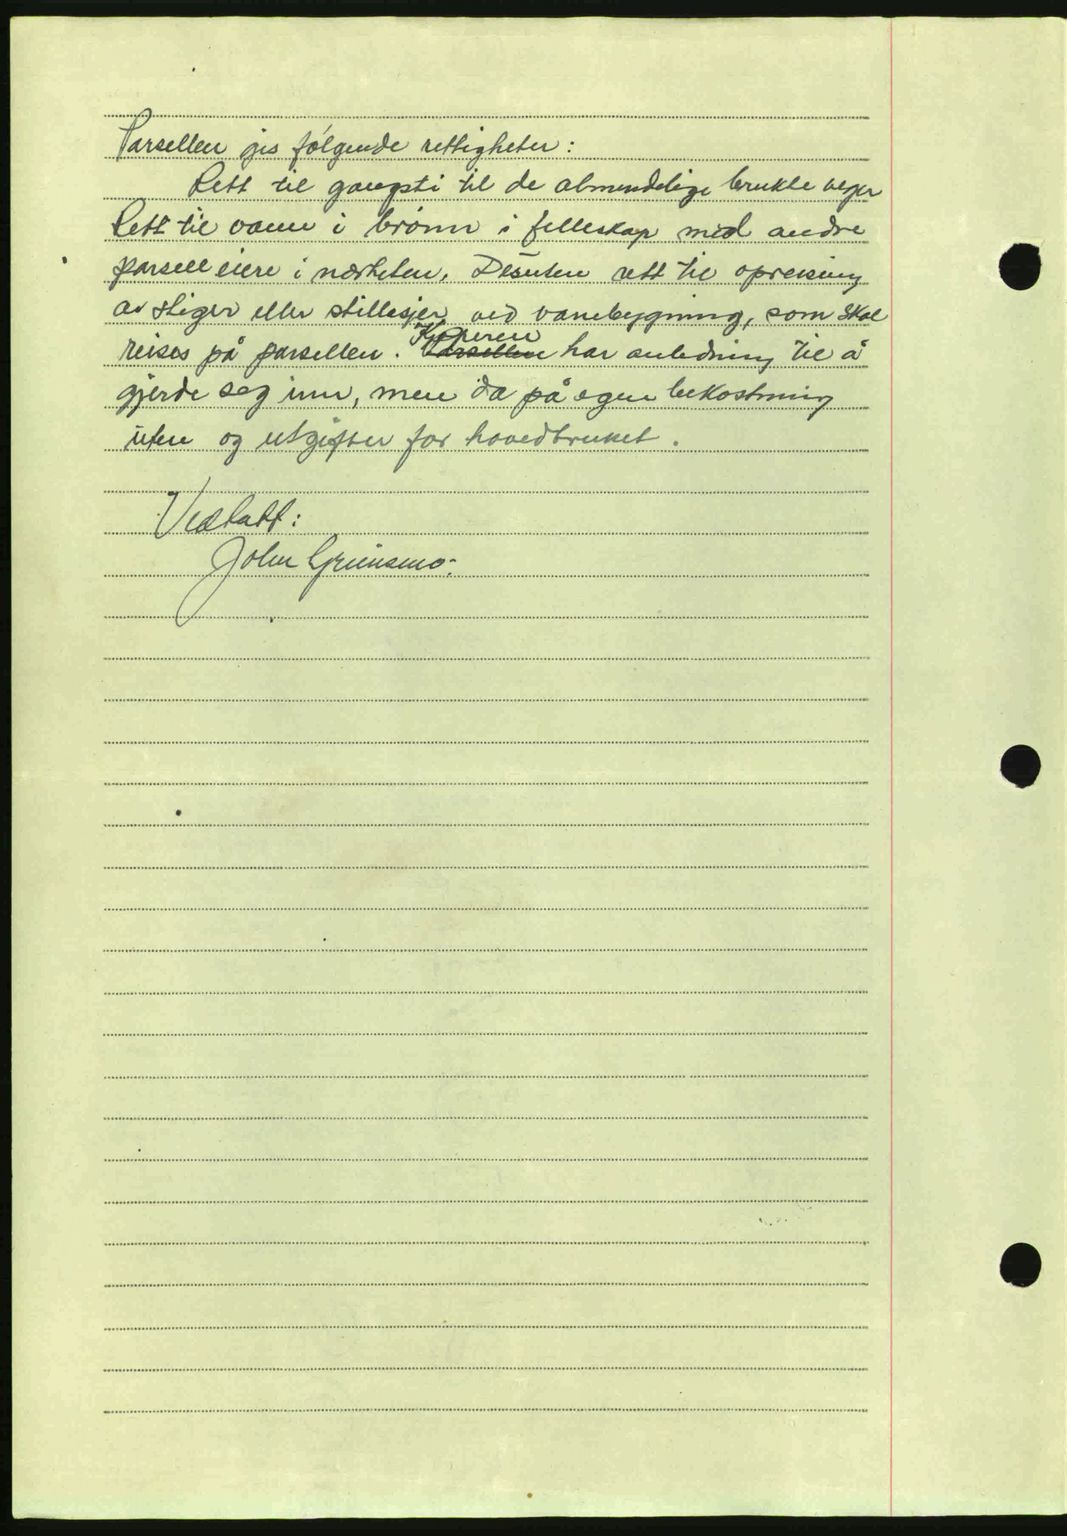 Parsellen gis følgende rettigheter:
Rett til gangsti til de almendelige brukte veger
Rett til vann i brønn i felleskap med andre
parsell eiere i nærheten. Desuten rett til opreising
av stiger eller stillesjer ved vanebygning, som skal
Kjøperen
reises på parsellen. Parsellen har anledning til å
gjerde seg inn, men da på egen bekostning
uten og utgifter for hovedbruket.
Vedtatt:
John Grimsmo.